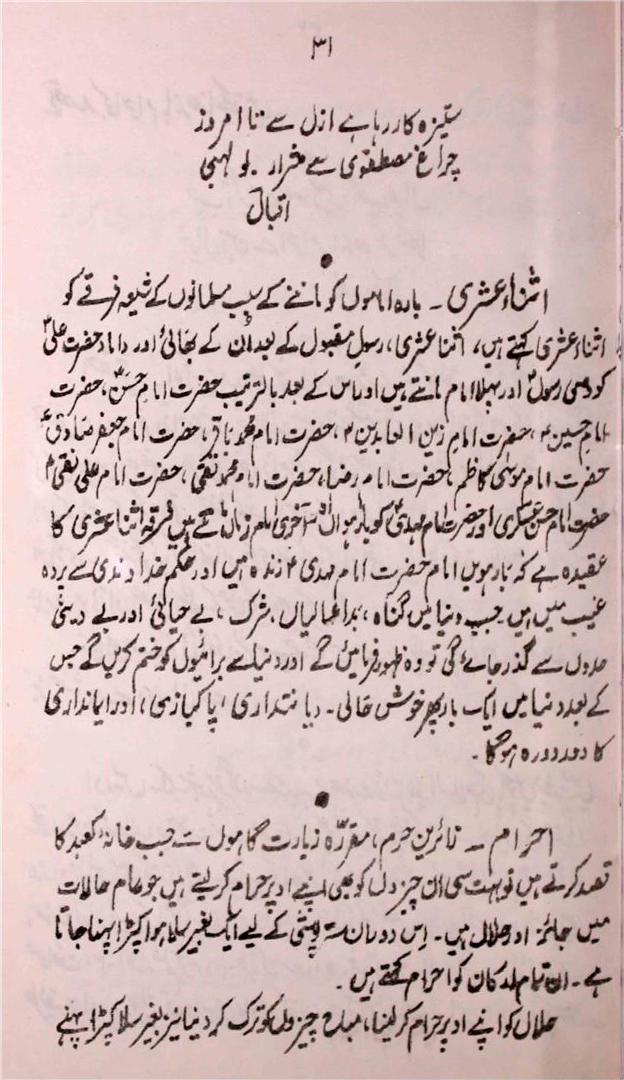 ۳۱
ستیزہ کار رہا ہے ازل سے تا امروز
چراغ مصطفوی سے شرار بولہبی
اقبالؔ
اثناء عشری ۔ بارہ اماموں کو ماننے کے سبب مسلمانوں کے شیعہ فرقے کو
اثناء عشری کہتے ہیں، اثنا عشری، رسولِ مقبول کے بعد اُن کے بھائی اور داماد حضرت علیؑ
کو وصی رسولؐ اور پہلا امام مانتے ہیں اور اس کے بعد بالترتیب حضرت امام حسنؑ، حضرت
امام حسینؑ، حضرت امام زین العابدینؑ، حضرت امام محمد باقر، حضرت امام جعفر صادقؑ
حضرت امام موسٰی کاظم، حضرت امام رضا، حضرت امام محمد تقی، حضرت امام علی نقیؑ
حضرت امام حسن عسکری اور حضرت امام مہدیؑ کو بارہواں اور آخری امام زماں مانتے ہیں فرقہ اثنا عشری کا
عقیدہ ہے کہ بارہویں امام حضرت امام مہدیؑ زندہ ہیں اور حکم خداوندی سے پردہ
غیب میں ہیں جب دنیا میں گناہ، بداعمالیاں، شرک، بے حیائی اور بے دینی
حدوں سے گذر جائے گی تو وہ ظہور فرمائیں گے اور دنیا سے برائیوں کو ختم کریں گے جس
کے بعد دنیا میں ایک بار پھر خوش حالی۔ دیانتداری، پاکبازی، اور ایمانداری
کا دور دورہ ہوگا۔
احرام ۔ زائرین حرم، مقررّہ زیارت گاہوں سے جب خانہ کعبہ کا
قصد کرتے ہیں تو بہت سی ان چیزوں کو بھی اپنے اوپر حرام کر لیتے ہیں جو عام حالات
میں جائز اور حلال ہیں۔ اس دوران ستر پوشی کے لیے ایک بغیر سلا ہوا کپڑا پہنا جاتا
ہے۔ ان تمام ارکان کو احرام کہتے ہیں۔
حلال کو اپنے اوپر حرام کر لینا، مباح چیزوں کو ترک کر دینا نیز بغیر سلا کپڑا پہننے